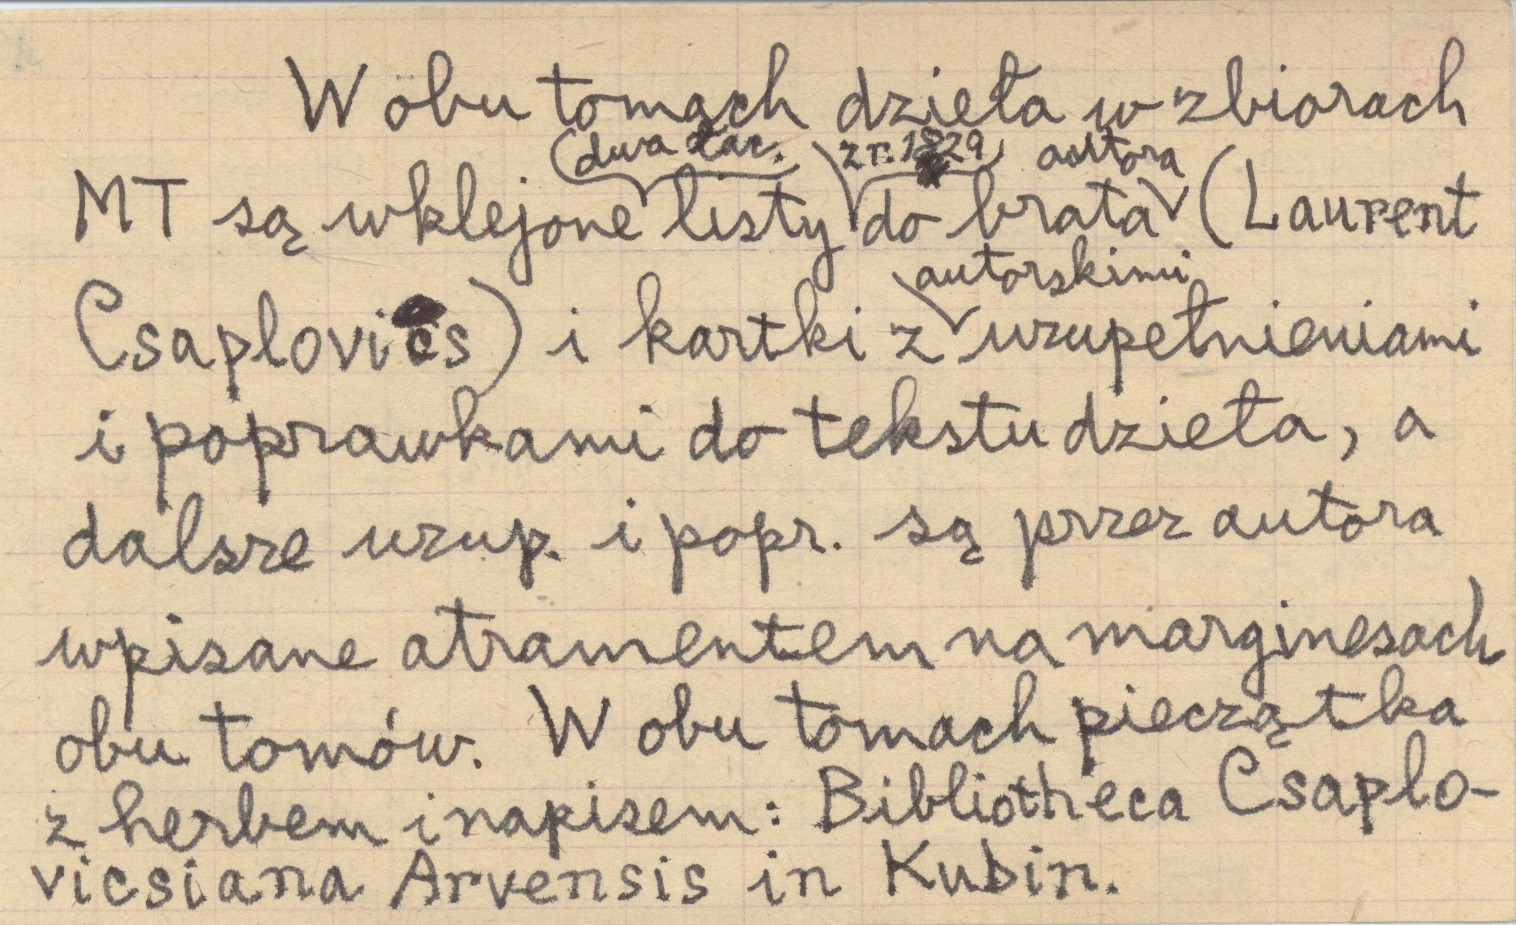 W obu tomach dzieła w zbiorach
(dwa łac. z r. 1829) autora
MT są wklejone listy do brata (Laurent
autorskimi
Csaplovics) i kartki z uzupełnieniami
i poprawkami do tekstu dzieła, a
dalsze uzup. i popr. są przez autora
wpisane atramentem na marginesach
obu tomów. W obu tomach pieczątka
z herbem i napisem: Bibliotheca Csaplo-
vicsiana Arvensis in Kubin.